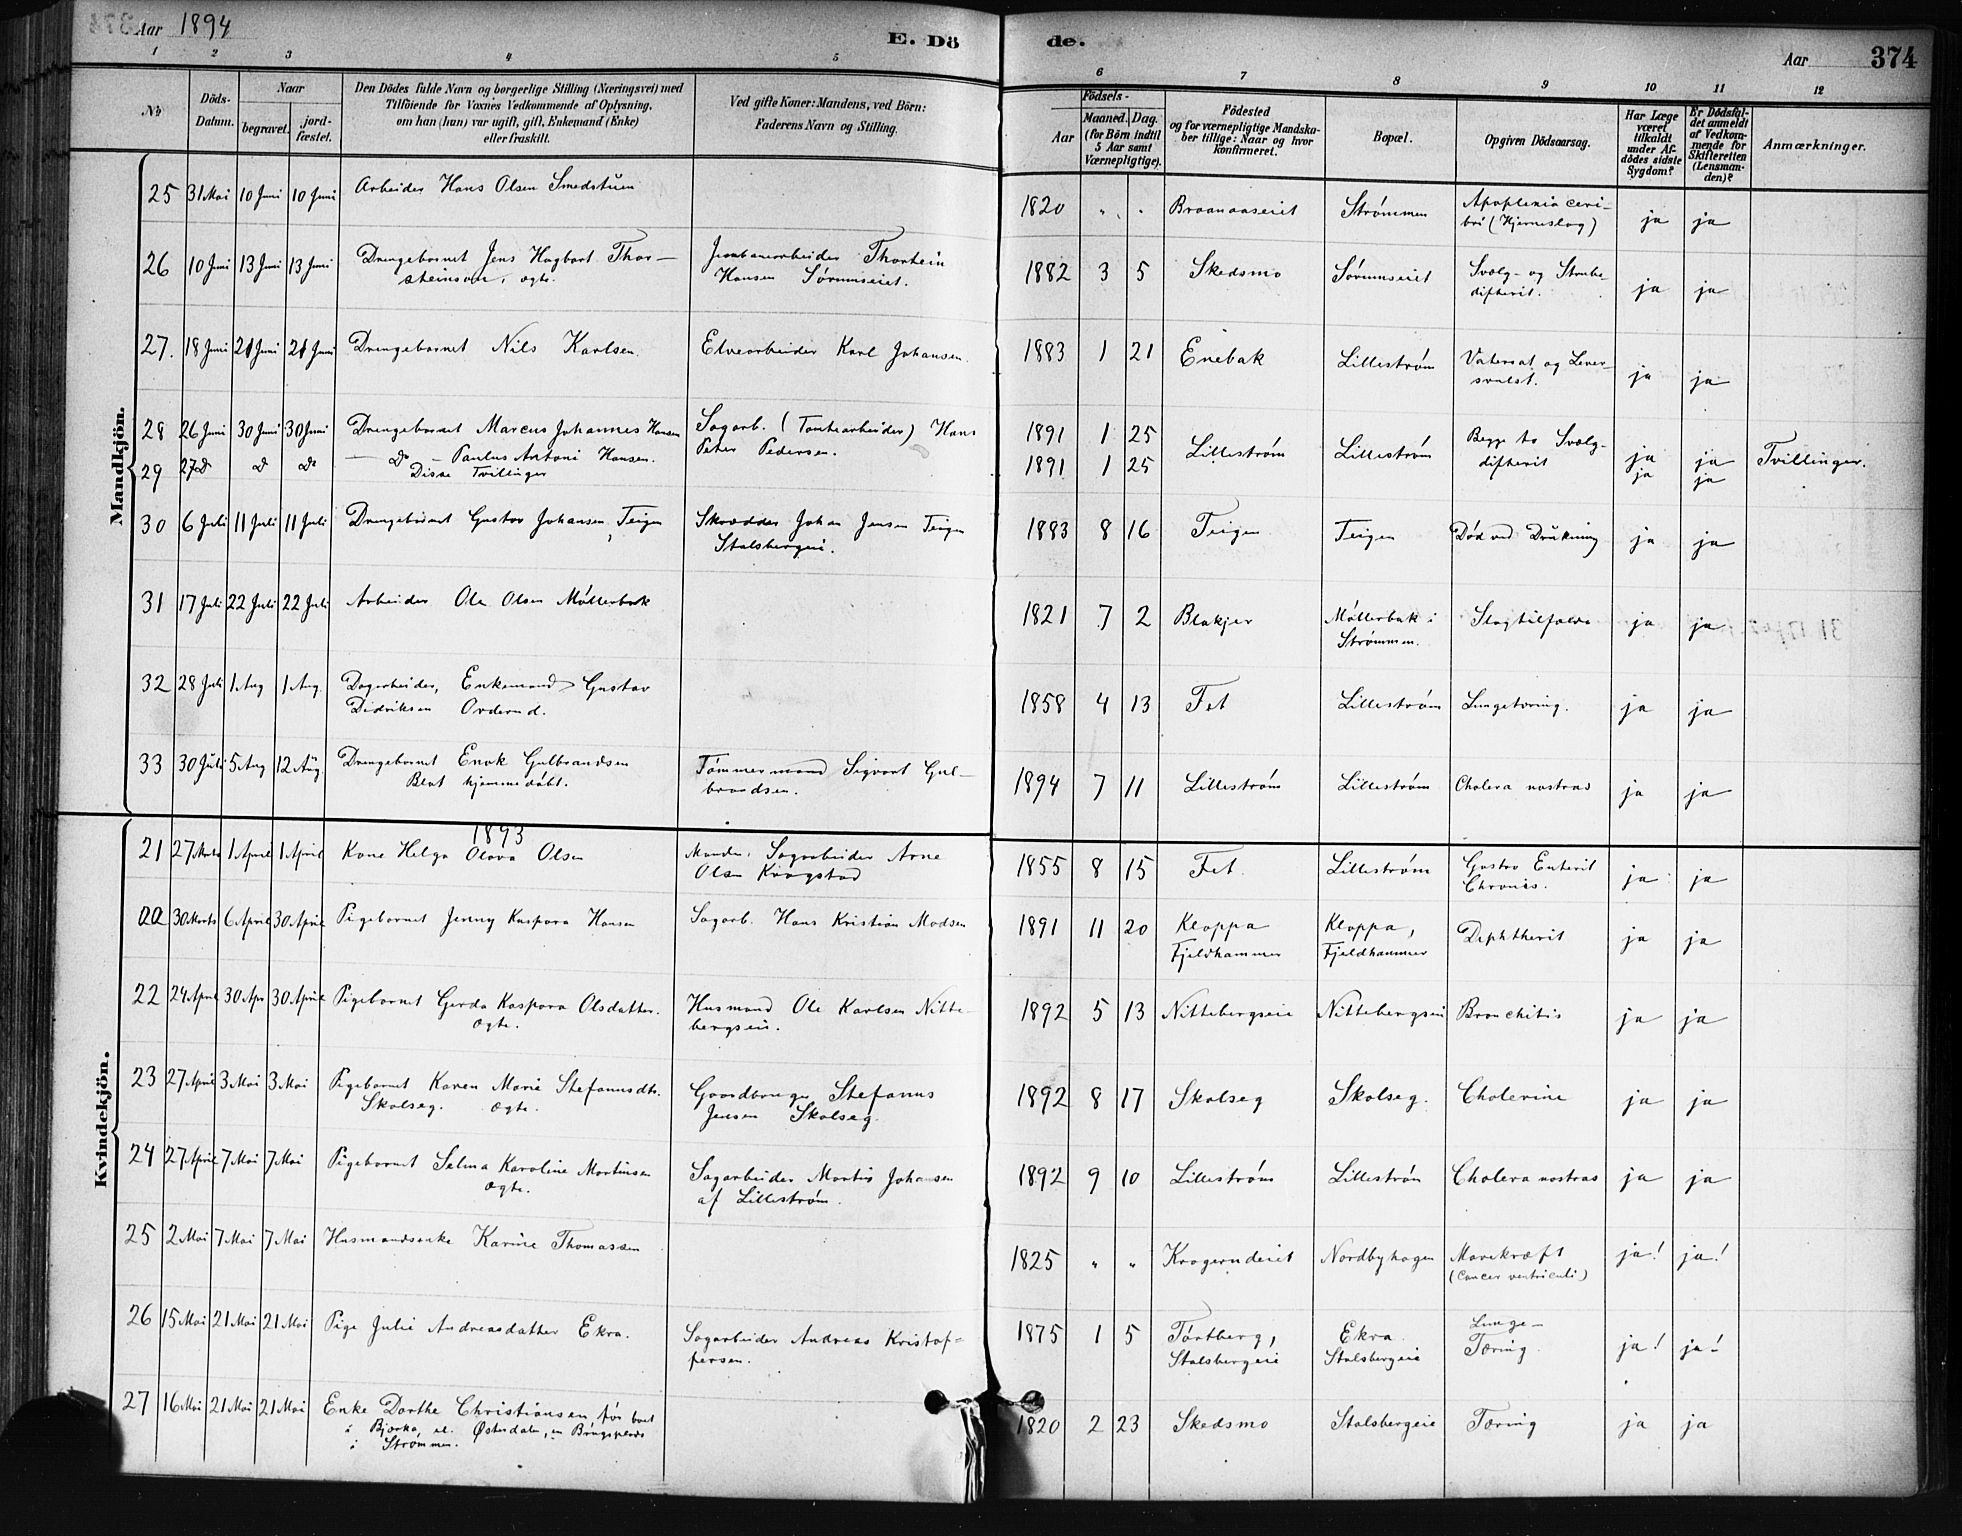 Aar 1894
E. Dö
de.
Aar
374
1 2 3 4 5 6 7 8 9 10 11 12
№
Döds-Datum.
Naar
begravet.
jord-fæstet.
Den Dödes fulde Navn og borgerlige Stilling (Næringsvei) med
Tilföiende for Voxnes Vedkommende af Oplysning,
om han (hun) var ugift, gift, Enkemand (Enke)
eller fraskilt.
Ved gifte Koner: Mandens, ved Börn:
Faderens Navn og Stilling.
Födsels-
Aar
Maaned. Dag.
(for Börn indtil
5 Aar samt
Værnepligtige).
Födested
og for værnepligtige Mandska-
ber tillige: Naar og hvor
konfirmeret.
Bopæl.
Opgiven Dödsaarsag.
Har Læge
været
tilkaldt
under Af-
dödes sidste
Sygdom?
Er Dödsfal-
det anmeldt
af Vedkom-
mende for
Skifteretten
(Lensman-
den)?
Anmærkninger.
Mandkjön.
25 31 Mai 10 Juni 10 Juni Arbeider Hans Olsen Smedstuen 1820 " " Braanaaseiet Strømmen Apoplexia ceri-
bri (Hjerneslag) ja ja
26 10 Juni 13 Juni 13 Juni Drengebarnet Jens Hagbart Thor-
steinson, ægte. Jernbanearbeider Thorstein
Hansen Sørumseiet. 1882 3 5 Skedsmo Sørumseiet Svælg- og Strube
difterit. ja ja
27. 18 Juni 21 Juni 21 Juni Drengebarnet Nils Karlsen. Elvearbeider Karl Johansen. 1883 1 21 Enebak Lillestrøm Vatersot og Lever-
svulst. ja ja
28 26 Juni 30 Juni 30 Juni Drengebarnet Marcus Johannes Hansen Sagarb. (Tomtearbeider) Hans
Peter Pedersen. 1891 1 25 Lillestrøm Lillestrøm Begge to Svælg-
difterit ja ja Tvillinger.
29 27 D° D° D° — D° — Paulus Antoni Hansen. 1891 1 25 ja ja
Disse Tvillinger
30 6 Juli 11 Juli 11 Juli Drengebarnet Gustav Johansen, Teigen Skrædder Johan Jensen Teigen
Stalsbergeie. 1883 8 16 Teigen Teigen Død ved Drukning ja ja
31 17 Juli 22 Juli 22 Juli Arbeider Ole Olsen Møllerbak 1821 7 2 Blakjer Møllerbak i
Strømmen. Slagtilfælde ja ja
32 28 Juli 1 Aug 1 Aug. Dagarbeider, Enkemand Gustav
Didriksen Orderud. 1858 4 13 Fet Lillestrøm Lungetæring. ja ja
33 30 Juli 5 Aug 12 Aug. Drengebarnet Enok Gulbrandsen
Blot hjemmedøbt. Tømmermand Sigvart Gul-
brandsen. 1894 7 11 Lillestrøm Lillestrøm Cholera nostras ja ja
Kvindekjön.
1893
21 27 Marts 1 April 1 April Kone Helga Olava Olsen Manden: Sagarbeider Arne
Olsen Kragstad 1855 8 15 Fet. Lillestrøm Gastro Enterit
Chronis. ja ja
30 Marts 6 April 30 April Pigebarnet Jenny Kaspara Hansen Sagarb. Hans Kristian Madsen 1891 11 20 Kloppa
Fjeldhammer Kloppa,
Fjeldhammer Diphtherit ja ja
22 24 April 30 Apr 30 April Pigebarnet Gerda Kaspara Olsdatter.
ægte. Husmand Ole Karlsen Nitte-
bergseie. 1892 5 13 Nittebergseie Nittebergseie Bronchitis ja ja
23 27 April 3 Mai 3 Mai Pigebarnet Karen Marie Stefanusdtr.
Skolseg. ægte. Gaardbruger Stefanus
Jensen Skolseg. 1892 8 17 Skolseg Skolseg. Cholerine ja ja
24 27 April 7 Mai 7 Mai Pigebarnet Selma Karoline Martinsen
ægte. Sagarbeider Martin Johansen
af Lillestrøm. 1892 9 10 Lillestrøm Lillestrøm Cholera nostras ja ja
25 2 Mai 7 Mai 7 Mai Husmandsenke Karine Thomassen 1825 " " Kragerudeiet Nordbyhagen Mavekræft
(Cancer ventriculi) ja! ja!
26 15 Mai 21 Mai 21 Mai Pige Julie Andreasdatter Ekra. Sagarbeider Andreas Kristof-
fersen. 1875 1 5 Tortberg,
Stalsbergeie Ekra.
Stalsbergeie Lunge-
Tæring. ja! ja!
27 16 Mai 21 Mai 21 Mai Enke Dorthe Christiansen, før boet
i Bjørka, el. Østerdalen, en Brugsplads
i Strømmen. 1820 2 23 Skedsmo Stalsbergeie Tæring ja ja